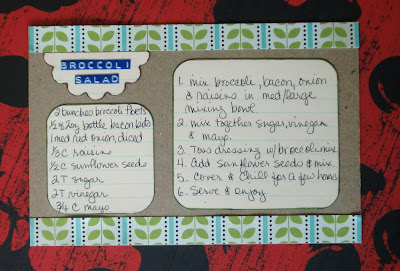 BROCCOLI
SALAD
2 bunches broccoli florets
1/2 of 2oz bottle bacon bits
1 med red onion, diced
1/3 C raisins
1/2 C sunflower seeds
2 T sugar
2 T vinegar
3/4 C mayo
1. mix broccoli, bacon, onion
& raisins in med/large
mixing bowl
2. mix together sugar, vinegar
& mayo.
3. Toss dressing w/ broccoli mix
4. Add sunflower seeds & mix.
5. Cover & chill for a few hours
6. Serve & enjoy